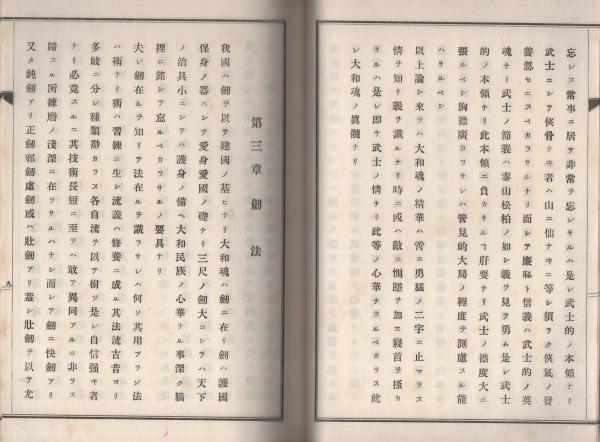 忘レス常事ニ居テ非常ヲ忘レサルハ是レ武士的ノ本領ナリ
武士ニシテ俠骨ナキ者ハ山ニ仙ナキニ等シ須ラク俠氣ノ發
養忽セニスベカラサルナリ而シテ廉恥ト信義ハ武士的ノ英
魂ナリ武士ノ節義ハ泰山松柏ノ如シ義ヲ見テ勇ム是レ武士
的ノ本領ナリ此本領ニ負カサルヿ肝要ナリ武士ノ襟度大ニ
張ルベシ胸襟廣カラサレハ管見的大局ノ程度ヲ測慮スル能
ハサルベシ
以上論シ來ラハ大和魂ノ精華ハ啻ニ勇猛ノ二字ニ止マラス
情ヲ知リ義ヲ識ルナリ時ニ或ハ敵ニ惻隱ヲ加エ寝首ヲ搔カ
サルハ是レ即チ武士ノ情ナリ此等ノ心華ナカルベカラス此
レ大和魂ノ眞髓ナリ
第三章劍法
我國ハ劍ヲ以テ建國ノ基ヒナリ大和魂ハ劍ニ在リ劍ハ護國
保身ノ器ニシテ愛身愛國ノ礎ナリ三尺ノ劍大ニシテハ天下
ノ治具小ニシテハ護身ノ備ヘ大和民族ノ心華ナル事深ク腦
裡ニ銘シテ忘ルベカラサルノ要具ナリ
夫レ劍在ルヲ知リテ法在ルヲ識ラサレハ何ソ其用アラン法
ハ術ナリ術ハ習練ニ生シ流義ハ修養ニ成ル其法流古昔ヨリ
多岐ニ分レ種類尠カラス各自流ヲ以テ樹ツ是レ自信强キ者
ナリ必竟スルニ其技術長短ニ至テハ敢テ異同アルニ非ラス
歸スル所練磨ノ淺深ニ在ラサルハナシ而シテ劍ニ快劍アリ
又タ鈍劍アリ正劍邪劍虛劍或ハ壯劍アリ蓋シ壯劍ヲ以テ尤
九